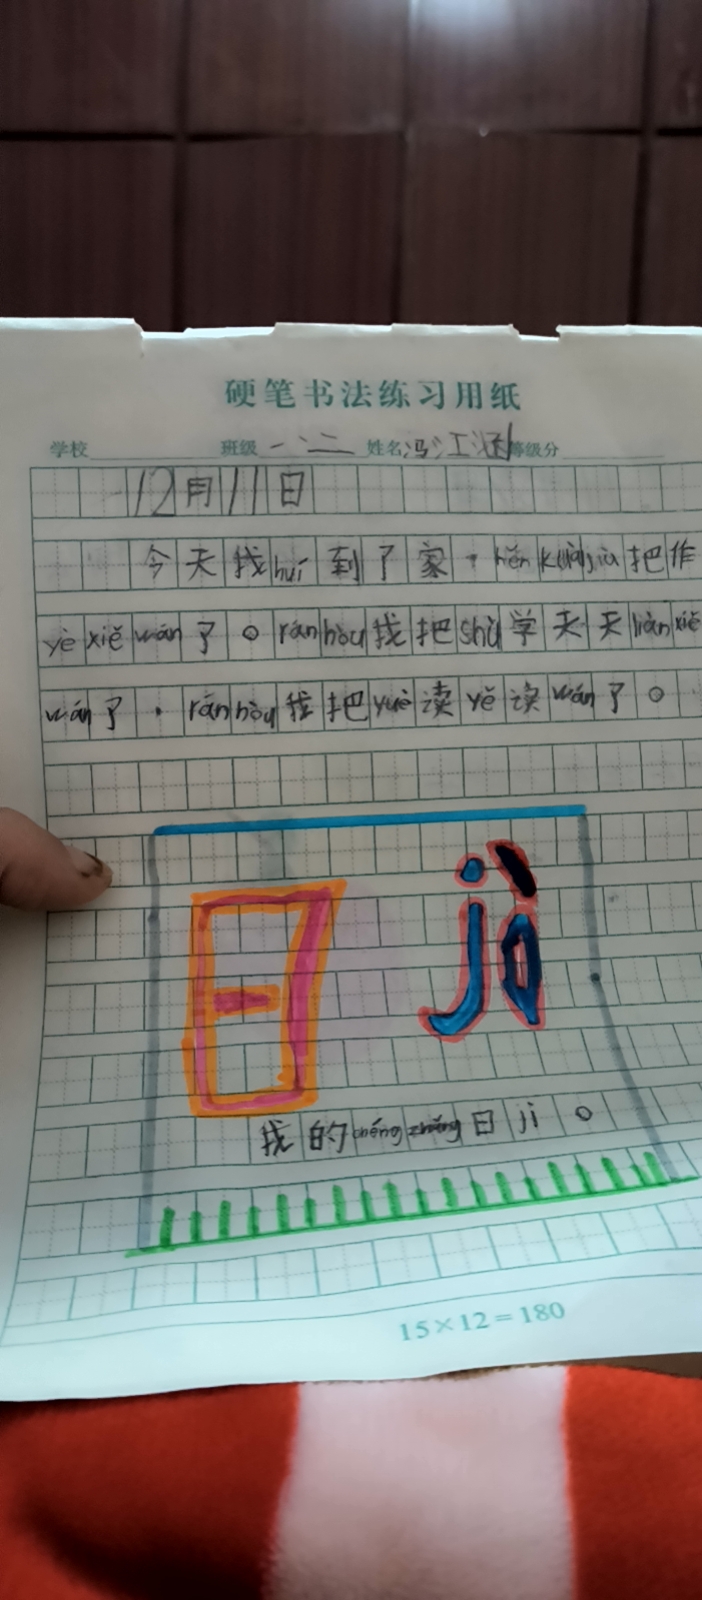 硬笔书法练习用纸
学校 班级 一.二 姓名 冯江涵 等级分
12月11日
今天找huí到了家，hěn kuàijiù把作
yè xiě wán了。ránhòu找把shù学天天liàn xiě
wán了，ránhòu我把yuè读yě读wán了。
日jì
找的chéngzhǎng日jì。
15×12=180